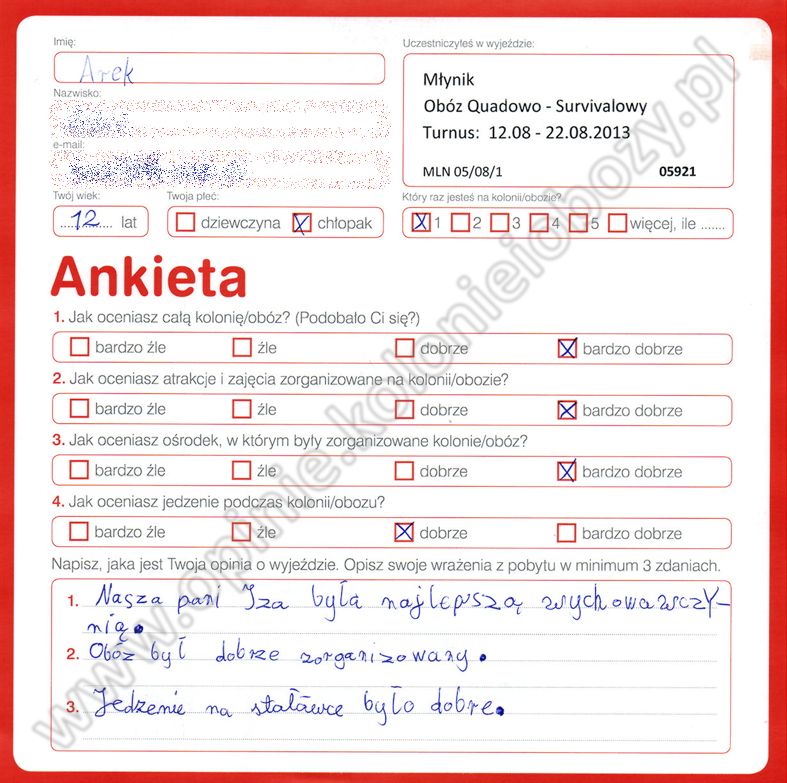 Imię:
Arek
Nazwisko:
e-mail:
Twój wiek:
12 lat
Twoja płeć:
dziewczyna chłopak
Uczestniczyłeś w wyjeździe:
Młynik
Obóz Quadowo - Survivalowy
Turnus: 12.08 - 22.08.2013
MLN 05/08/1 05921
Który raz jesteś na kolonii/obozie?
1 2 3 4 5 więcej, ile .......
Ankieta
1. Jak oceniasz całą kolonię/obóz? (Podobało Ci się?)
bardzo źle źle dobrze bardzo dobrze
2. Jak oceniasz atrakcje i zajęcia zorganizowane na kolonii/obozie?
bardzo źle źle dobrze bardzo dobrze
3. Jak oceniasz ośrodek, w którym były zorganizowane kolonie/obóz?
bardzo źle źle dobrze bardzo dobrze
4. Jak oceniasz jedzenie podczas kolonii/obozu?
bardzo źle źle dobrze bardzo dobrze
Napisz, jaka jest Twoja opinia o wyjeździe. Opisz swoje wrażenia z pobytu w minimum 3 zdaniach.
1. Nasza pani Iza była najlepszą wychowawczy-
nią.
2. Obóz był dobrze zorganizowany.
3. Jedzenie na staławce było dobre.
www.opinie.kolonieiobozy.pl